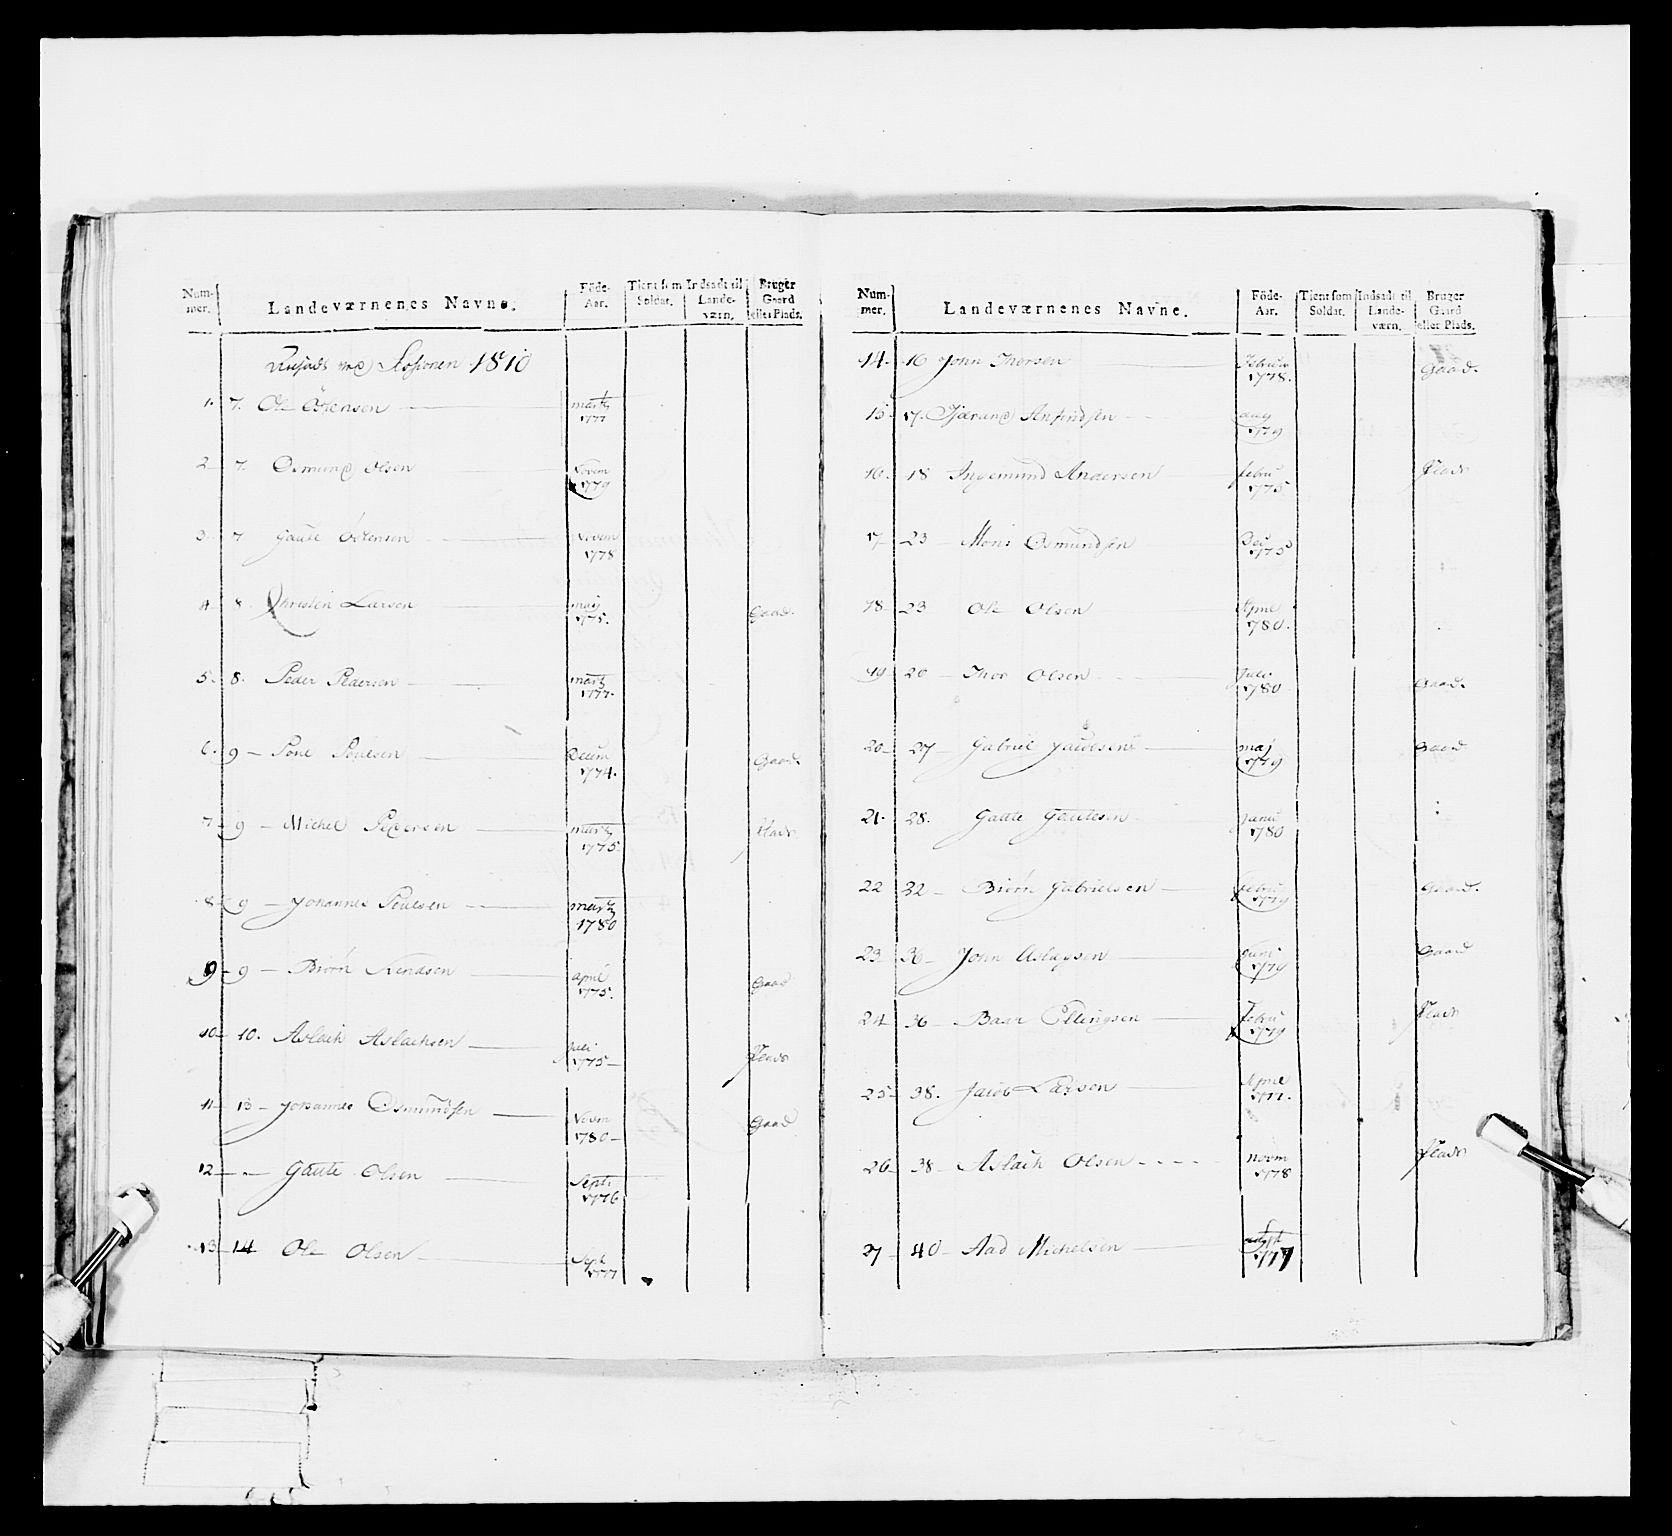 Num- mer. Landeværnenes Navne. Föde- Aar. Tient som Soldat. Indsadt til Lande- værn. Bruger Gaard eller Plads.
Sessionen 1810
1. 7. Ole martz 1777
2 7. Osmund Olsen Novem 1779
3. 7 Gaute Novem 1778
4. 8. Christen Larsen maj 1775. Gaad.
5. 8. Peder Pedersen martz 1777.
6. 9 Decem 1774. Gaad.
7 9 Michel Pedersen martz 1775. Plads
8 9 Johannes martz 1780
9 9 Biørn April 1775. Gaad
10 10. Aslach Aslachsen Juli 1775 Plads
11 13 Johannes Osmundsen Novm 1780 Gaad
12 Gaute Olsen Septr 1776
13 14 Ole Olsen Sept 1777
Num- mer. Landeværnenes Navne. Föde- Aar. Tient som Soldat. Indsadt til Lande- værn. Bruger Gaard eller Plads.
14. 16 John Thorsen Februar 1778. Gaad.
15 17. Anfindsen aug 1779
16. 18 Ingemund Andersen Febru 1775 Plads
17 23 Mons Osmundsen 1775
18. 23 Ole Olsen April 1780.
19 20 Thor Olsen Juli 1780 Gaad.
20 27 Gabriel maj 1779 Gaad
21. 28. Gaute Gautesen Janu 1780
22 32 Biørn Gabrielsen Febru 1779 Gaad.
23 36 John Aslagsen Juni 1779 Gaad
24 36 Baar Ellingsen Febru 1779 Plads
25 38. Jacob Larsen April 1777.
26 38 Aslach Olsen Novm 1778 Plads
27 40 Aad Michelsen 1777